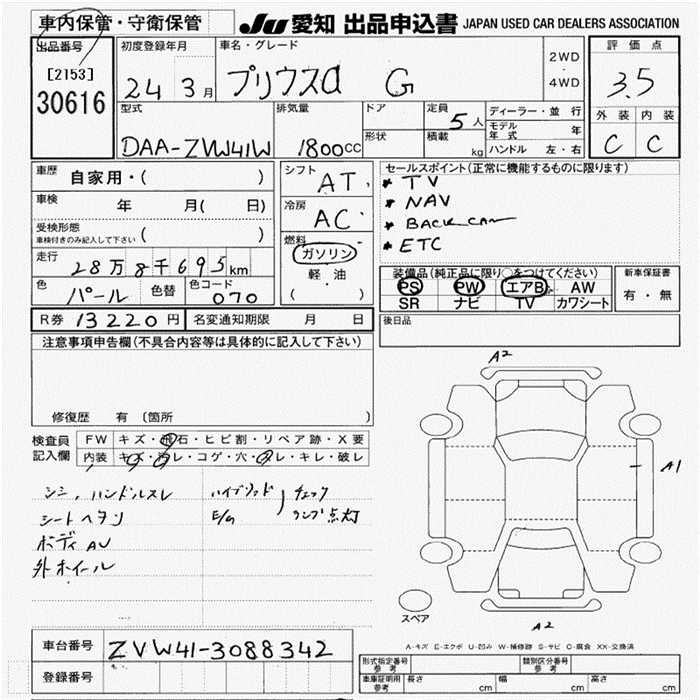 車内保管・守衛保管
JU 愛知 出品申込書 JAPAN USED CAR DEALERS ASSOCIATION
出品番号
[2153]
30616
初度登録年月
24 3月
車名・グレード
プリウスα G
2WD
・
4WD
評価点
3.5
外装 内装
C C
型式
DAA-ZVW41W
排気量
1800cc
ドア
形状
定員 5人
積載 kg
ディーラー・並行
モデル年式 年
ハンドル 左・右
車歴 自家用・( )
車検 年 月( 日)
受検形態
車検付きのみ記入して下さい ( )
走行 28万8千695km
色 パール 色替 色コード 070
シフト AT
冷房 AC
燃料
ガソリン
・
軽油
( )
セールスポイント(正常に機能するものに限ります)
* TV
* NAV
* BACK cam
* ETC
装備品(純正品に限り○をつけてください)
PS PW エアB AW
SR ナビ TV カワシート
新車保証書
有・無
R券 13220円 名変通知期限 月 日
後日品
注意事項申告欄(不具合内容等は具体的に記入して下さい)
修復歴 有 〔箇所
検査員記入欄
FW キズ・飛石・ヒビ割・リペア跡・X要
内装 キズ・汚レ・コゲ・穴・スレ・キレ・破レ
シミ、ハンドルスレ
シートヘタリ
ボディAU
外ホイール
ハイブリッド
E/G
チェック
ランプ点灯
A2
A1
A2
スペア
A-キズ E-エクボ U-凹み W-補修跡 S-サビ C-腐食 XX-交換済
車台番号 ZVW41-3088342
登録番号
形式指定番号
参考
類別区分番号
参考
車庫証明用
参考
長さ cm 幅 cm 高さ cm